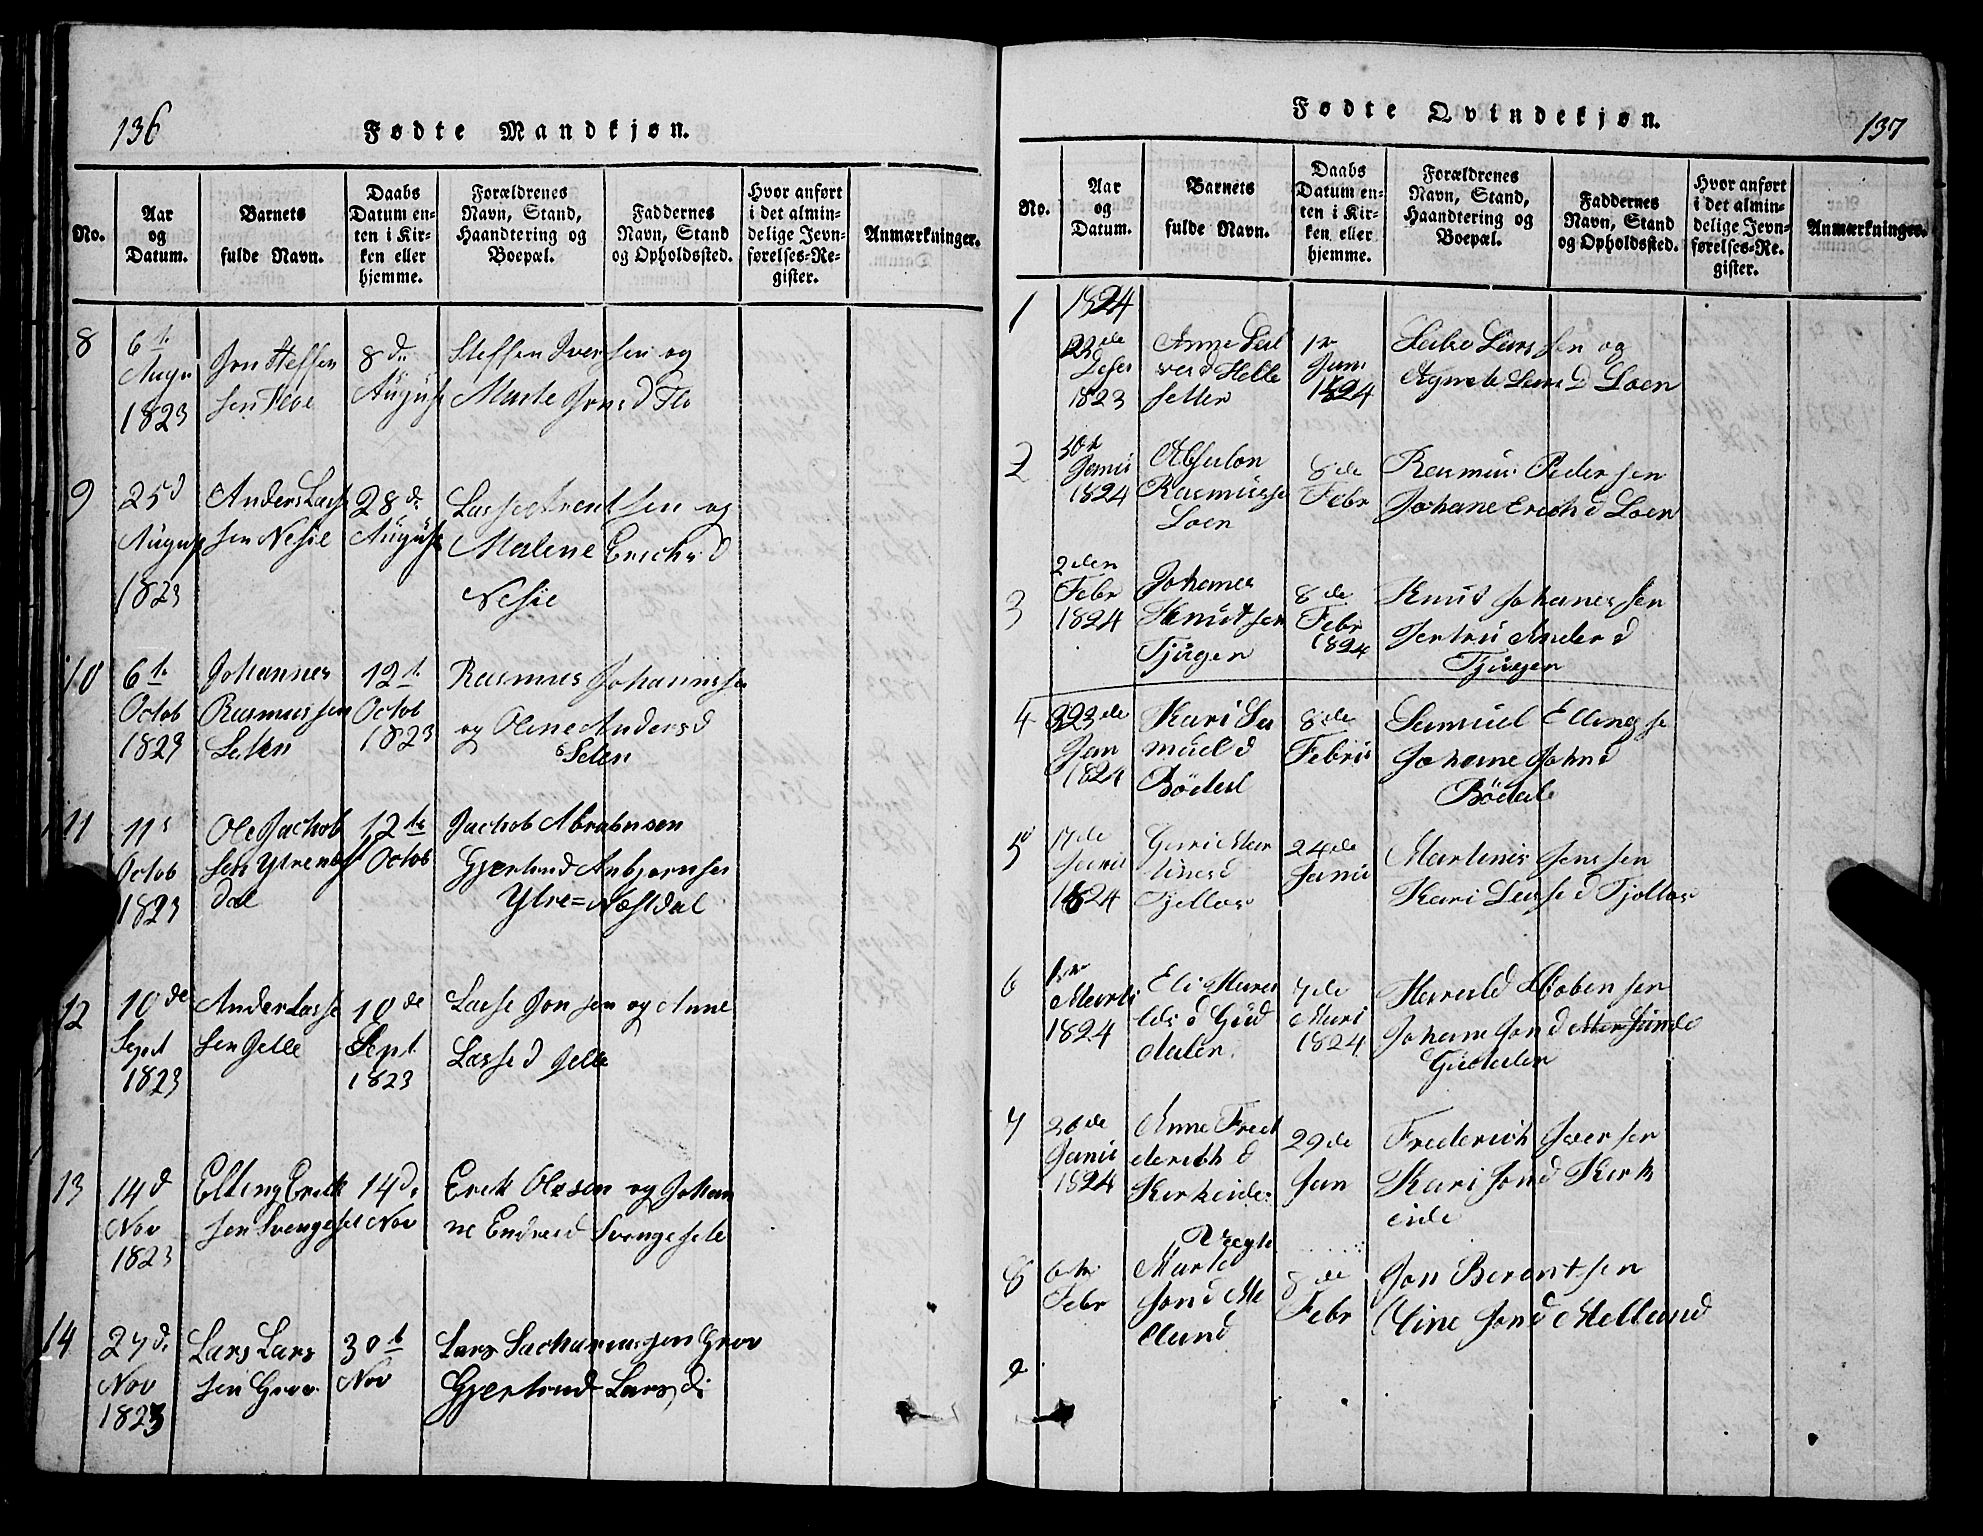 136
Fødte Mandkjøn.
No.
Aar
og
Datum.
Barnets
fulde Navn.
Daabs
Datum en-
ten i Kir-
ken eller
hjemme.
Forældrenes
Navn, Stand,
Haandtering og
Boepæl.
Faddernes
Navn, Stand
og Opholdssted.
Hvor anført
i det almin-
delige Jevn-
førelses-Re-
gister.
Anmærkninger.
8
6te
Augu
1823
Jon Steffen
sen Floe
8de
August
Steffen Iversen og
Marte Jonsd Flo
9
25d
August
1823
Anders Lasse
sen Nesie
28de
August
Lasse Arentsen og
Malene Erichsd
Nesie
10
6te
Octob
1823
Johannes
Rasmussen
Seten
12te
Octob
1823
Rasmus Johannesse
og Olene Andersd
Seten
11
11s
Octob
1823
Ole Jachob
sen Ytrenæst
dal
12te
Octob
Jachob Abrahmsen
Gjertrud Anbjørnsen
Ytre=Næstdal
12
10de
Sept
1823
Ander Lasse
sen Gelle
10de
Sept
1823
Lasse Jonsen og Anne
Lassed Gelle
13
14d
Nov
1823
Elling Erik
sen Svengeset
14de
Nov
Erik Olesen og Johan
ne Endresd Svengesete
14
27de
Nov
1823
Lars Lars
sen Grov
30te
Nov
Lars Sachariassen Grov
Gjertrud Larsd:
137
Fødte Qvindekjøn.
No.
Aar
og
Datum.
Barnets
fulde Navn.
Daabs
Datum en-
ten i Kir-
ken eller
hjemme.
Forældrenes
Navn, Stand,
Haandtering og
Boepæl.
Faddernes
Navn, Stand
og Opholdssted.
Hvor anført
i det almin-
delige Jevn-
førelses-Re-
gister.
Anmærkninger.
1
1824
23de
1823
Anne
Helle
setter
1te
Jani
1824
Larssen og
Agnete Larsd Loen
2
30te
Janu
1824
Absalon
Rasmusse
Loen
8de
Febr
Rasmus Pedersen
Johane Erichd Loen
3
2den
Febr
1824
Johanes
Knutsen
Tjugen
8de
Febr
1824
Knud Johanessen
Jertru Anderd
Tjugen
4
23de
Jan
1824
Kari Sa
mueld
Bödal
8de
Febru
Samuel Ellingse
Johane Johnd
Bödal
5
17de
Janu
1824
Guri Mar
tinesd
Tjellos
24de
Janu
Martinus Jenssen
Kari Lassed Tjollos
6
1te
Marti
1824
Eli Hara
lds d Gud
dalen.
7de
Mari
1824
Harald Jacobensen
Johane Jond
Guddalen
7
26de
Janu
1824
Anne Fred
derichd
Kirkeide
29de
Jan
Frederich Iversen
Kari Jond Kirk
eide
8
6te
Febr
Marte
Jond Me
lland
8de
Febr
Jon Berantsen
Melland